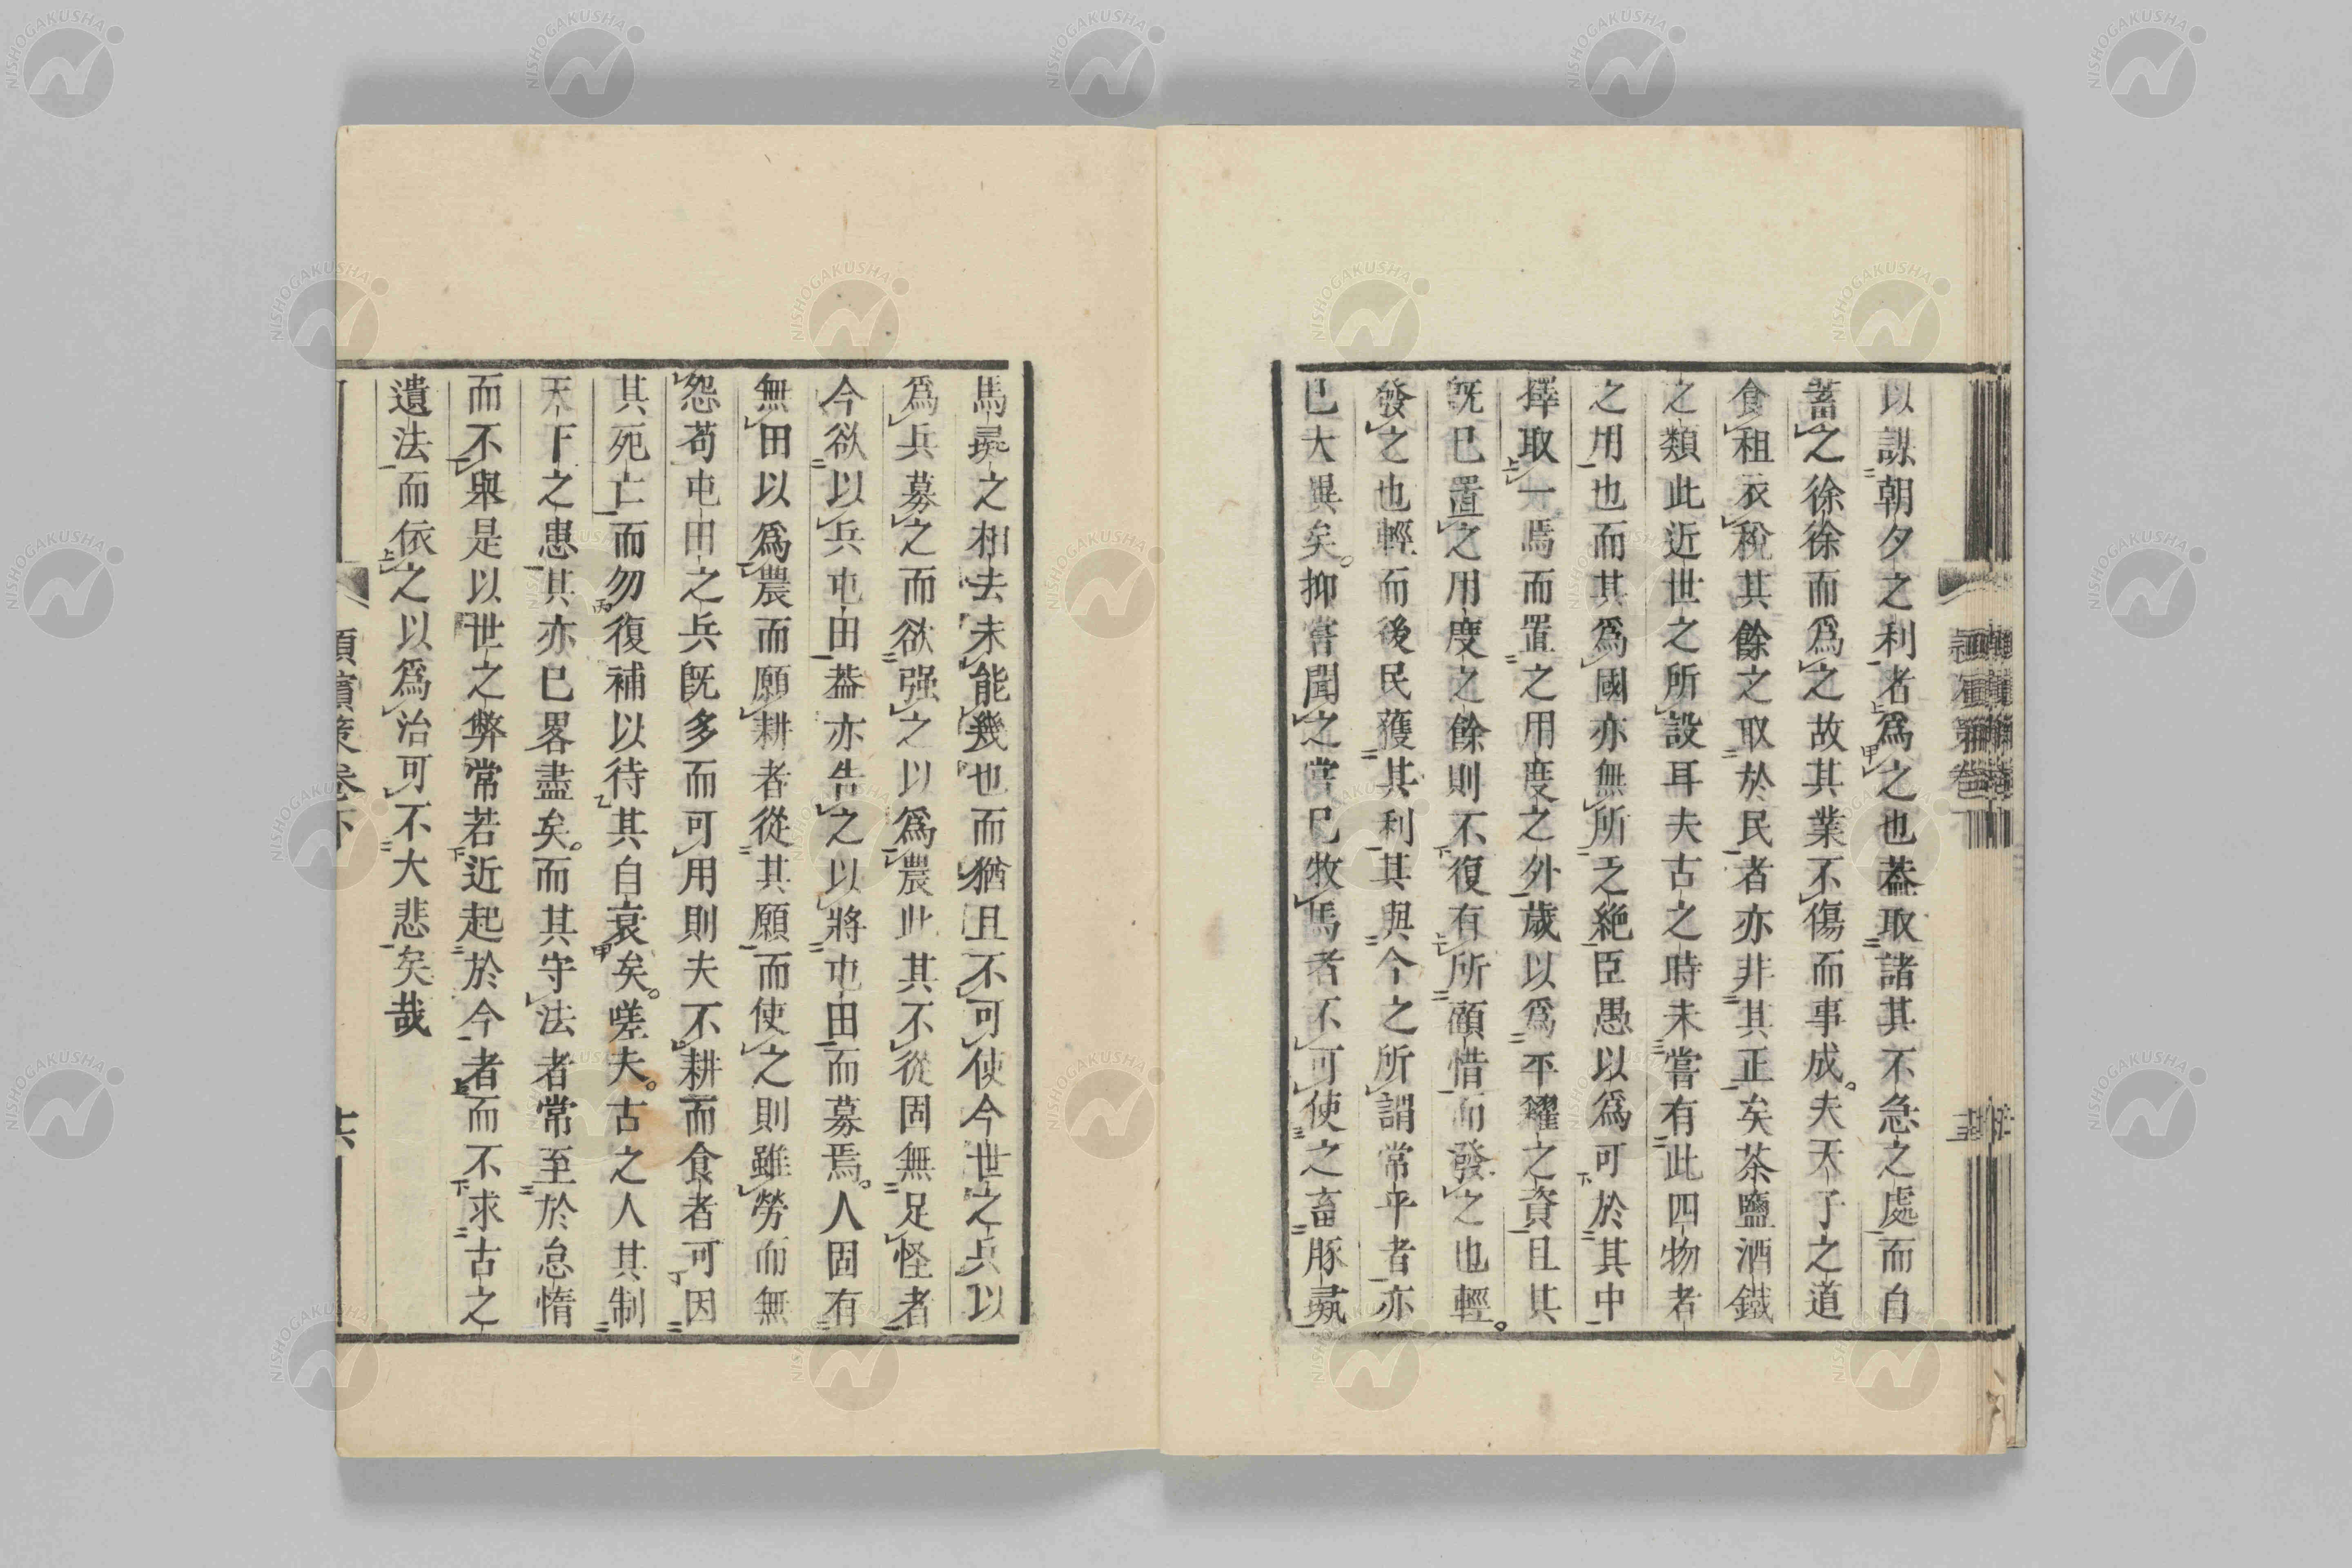 以謀朝夕之利者爲之也葢取諸其不急之處而自
蓄之徐徐而爲之故其業不傷而事成。夫天子之道
食租衣稅其餘之取於民者亦非其正矣茶鹽酒鐵
之類此近世之所設耳夫古之時未嘗有此四物者
之用也而其爲國亦無所乏絶臣愚以爲可於其中
擇取一焉而置之用度之外歲以爲平糴之資且其
旣已置之用度之餘則不復有所顧惜而發之也輕。
發之也輕而後民獲其利其與今之所謂常平者亦
已大異矣。抑嘗聞之嘗已牧馬者不可使之畜豚彘
馬彘之相去未能幾也而猶且不可使今世之兵以
爲兵募之而欲强之以爲農此其不從固無足怪者
今欲以兵屯田葢亦告之以將屯田而募焉。人固有
無田以爲農而願耕者從其願而使之則雖勞而無
怨苟屯田之兵旣多而可用則夫不耕而食者可因
其死亡而勿復補以待其自衰矣。嗟夫。古之人其制
天下之患其亦已畧盡矣。而其守法者常至於怠惰
而不舉是以世之弊常若近起於今者而不求古之
遺法而依之以爲治可不大悲矣哉
潁濱策卷下
十六
NISHOGAKUSHA